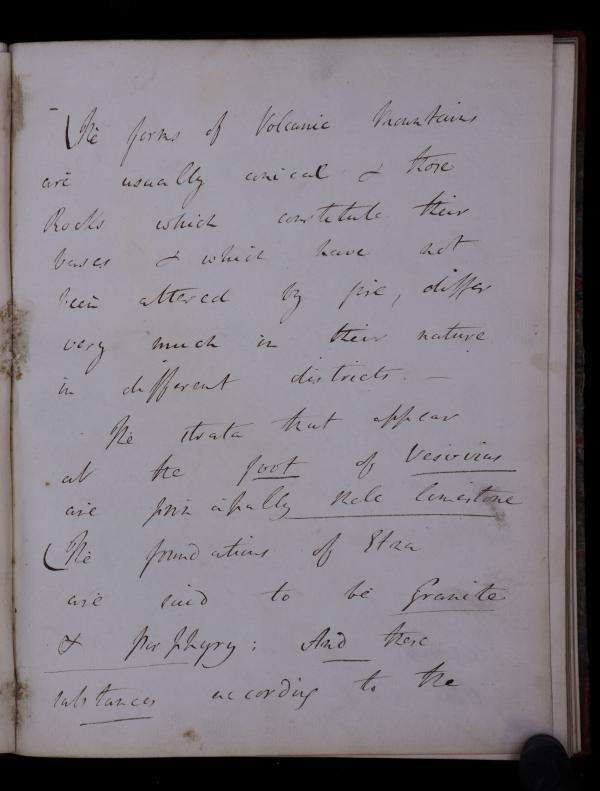 The forms of Volcanic Mountains
are usually conical & those
Rocks which constitute their
bases & which have not
been altered by fire, differ
very much in their nature
in different districts. —
The strata that appear
at the foot of Vesuvius
are principally limestone
The foundations of Etna
are said to be Granite
& porphyry: And these
substances according to the